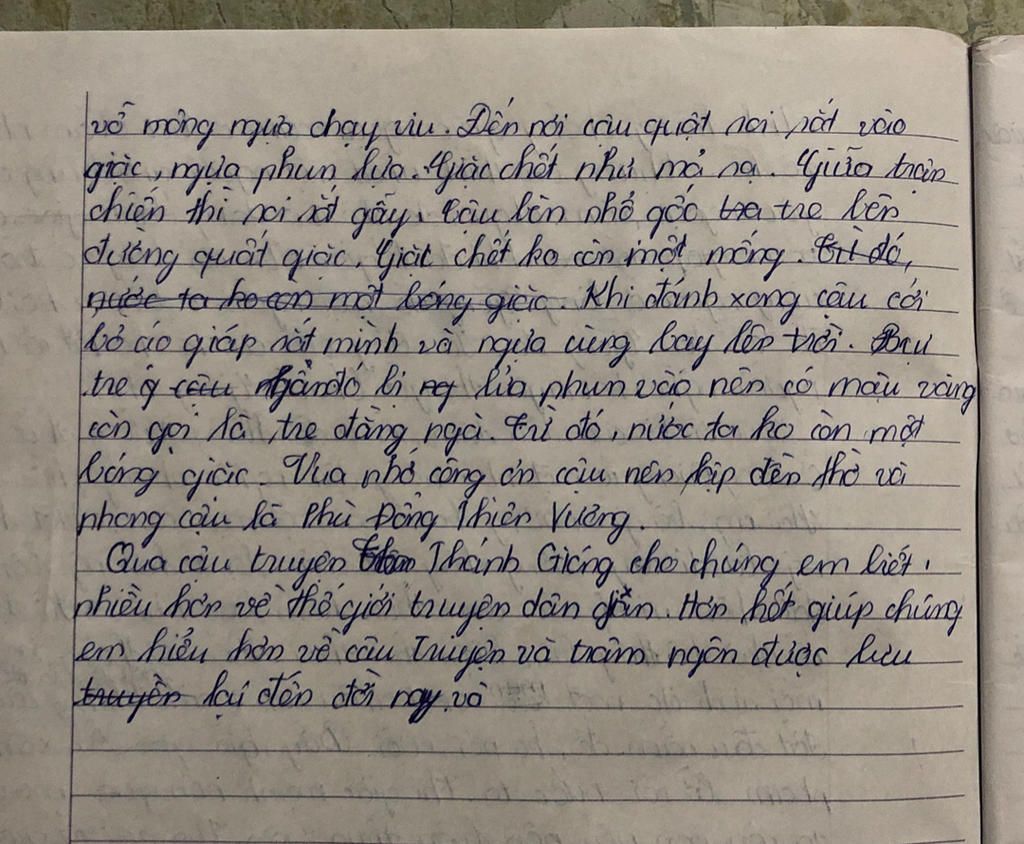 vỗ mông ngựa chạy viu. Đến nơi cậu quật roi sắt vào
giặc, ngựa phun lửa. Giặc chết như mả rạ. Giữa trận
chiến thì roi sắt gãy. Cậu bèn nhổ gốc tre bên
đường quất giặc. Giặc chết ko còn một mống. Từ đó,
nước ta ko còn một bóng giặc. Khi đánh xong cậu cởi
bỏ áo giáp sắt mình và ngựa cùng bay lên trời.
tre ở gần đó bị lửa phun vào nên có màu vàng
còn gọi là tre đằng ngà. Từ đó, nước ta ko còn một
bóng giặc. Vua nhớ công ơn cậu nên lập đền thờ và
phong cậu là Phù Đổng Thiên Vương.
Qua câu truyện Thánh Gióng cho chúng em biết
nhiều hơn về thế giới truyện dân gian. Hơn hết giúp chúng
em hiểu hơn về câu truyện và trâm ngôn được lưu
truyền lại đến đời nay và